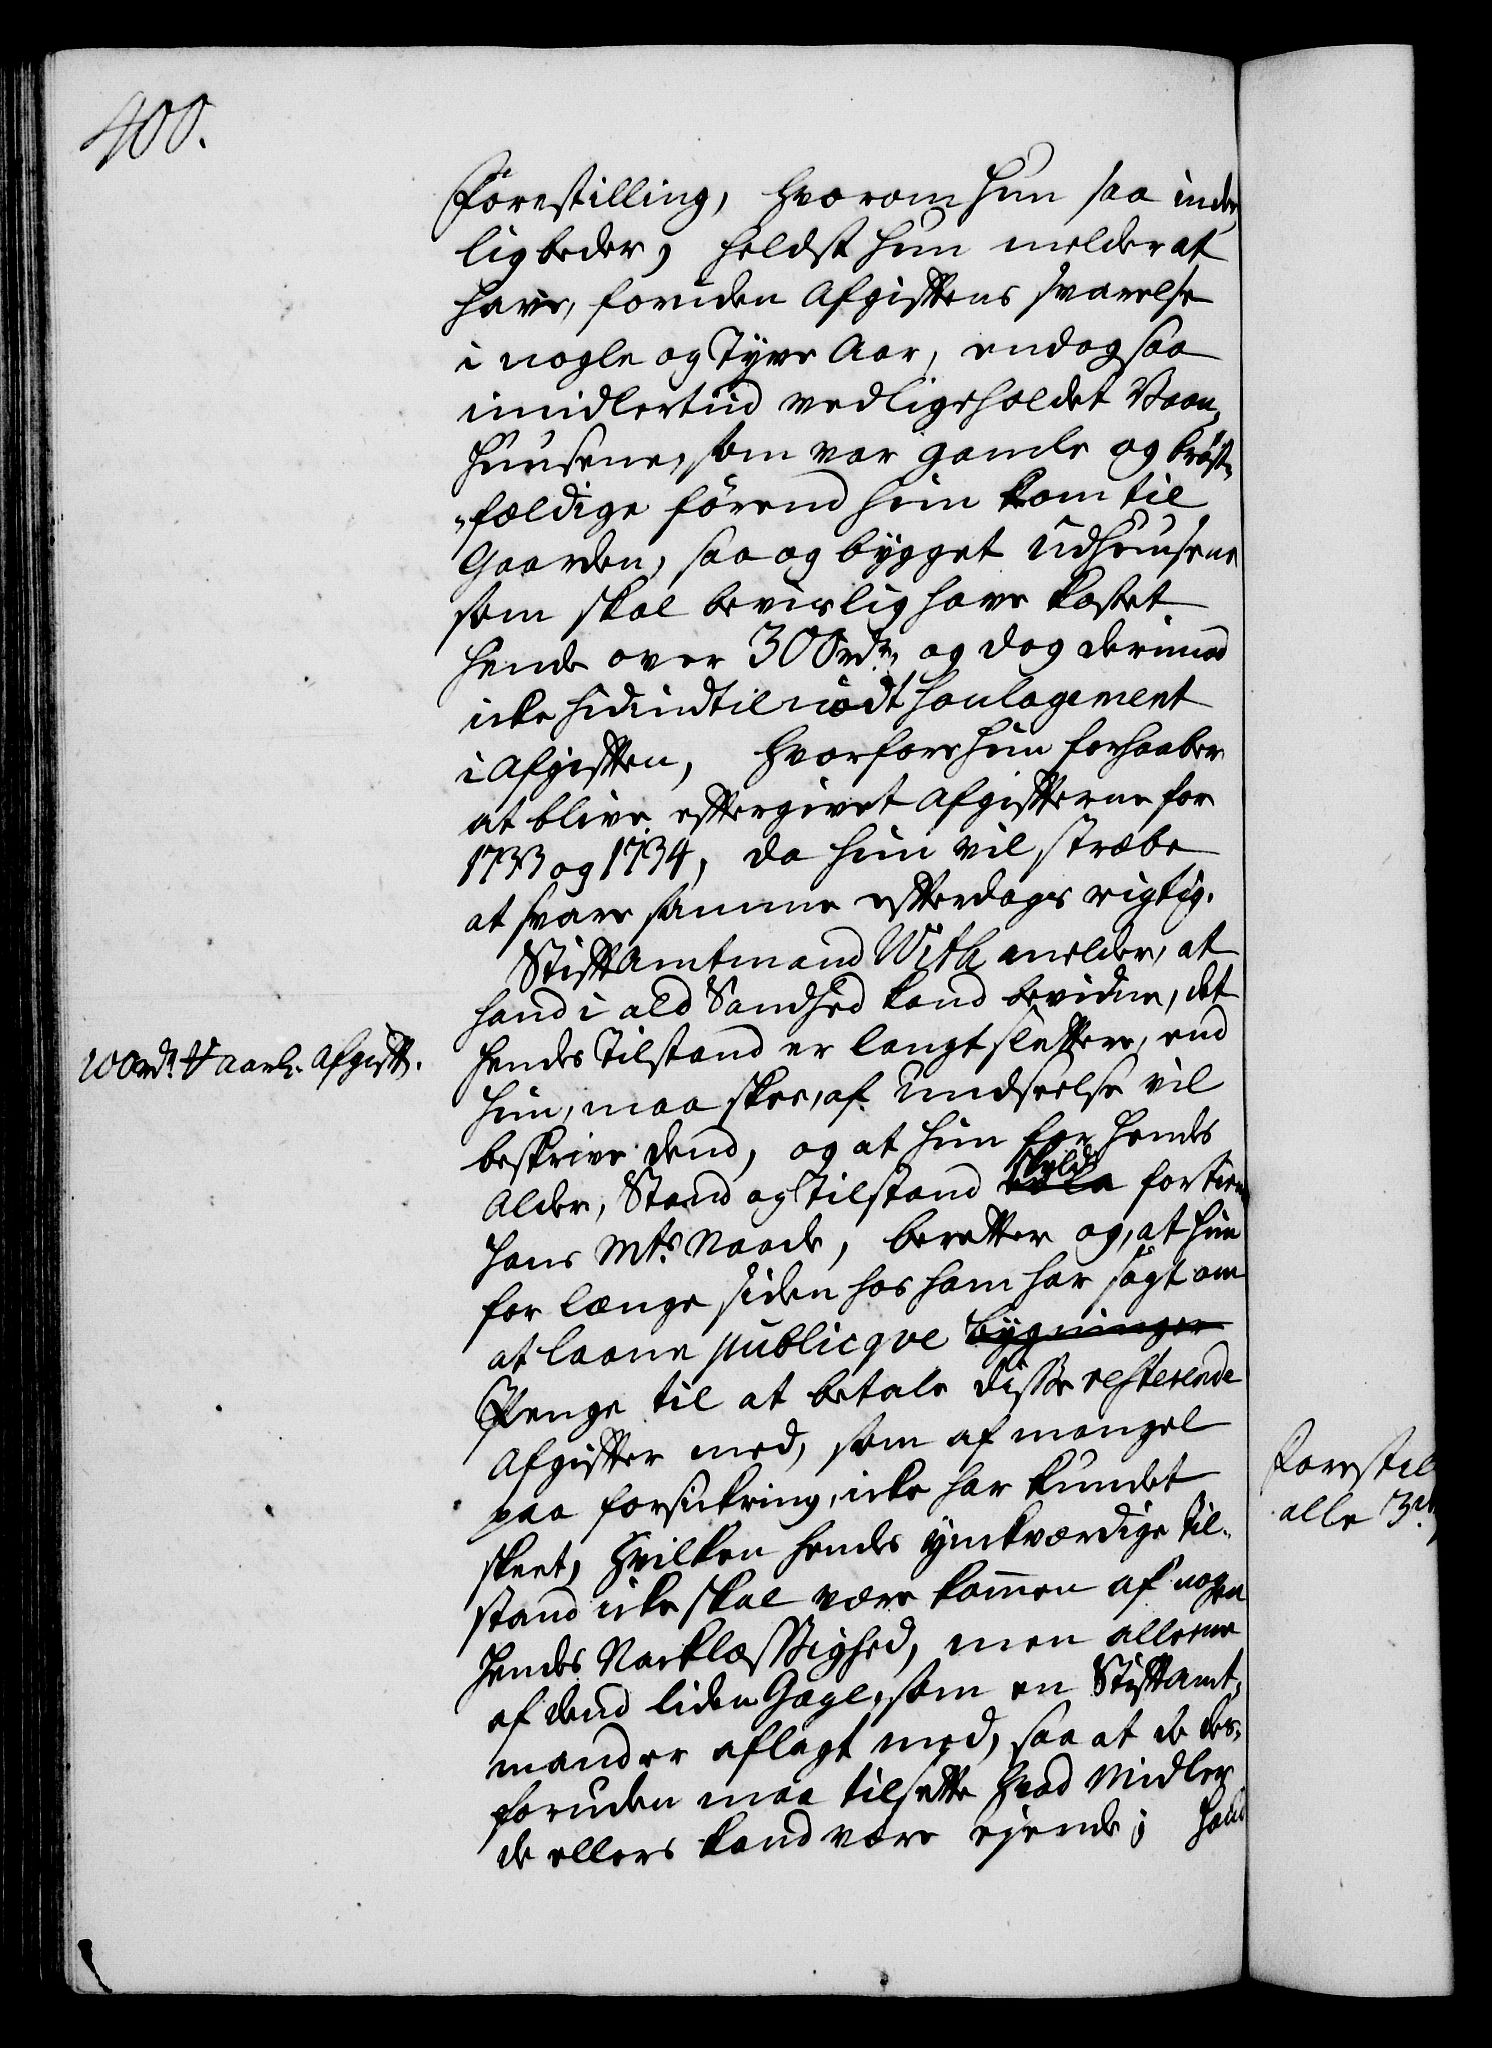 400.
Forestilling, hvorom hun saa inder,
lig beder, heldst hun melder at
have, foruden Afgiftens svarelse
i nogle og Tyve Aar, endog saa
imidlertiid vedligeholdet Vaan,
huusene, som var gamle og brøst,
„fældige førend hun kom til
Gaarden, saa og bygget Udhuusene
som skal beviislig have kostet
hende over 300 rdr, og dog derimod
icke hidindtil nødt Soulagement
i Afgiften, hvorfore hun forhaaber
at blive eftergivet Afgifterne for
1733 og 1734, da hun vil stræbe
at svare samme efterdags rigtig.
Stiftamtmand With melder, at
hand i ald Sandhed kand bevidne, det
100 rdr aarl. Afgift.
hendes Tilstand er langt slettere, end
hun, maa skee, af Undseelse vil
beskrive dend, og at hun for hendes
Alder, Stand og Tilstand skyld fortien
Hans Mts Naade, beretter og, at hun
for længe siden hos ham har søgt om
at laane publicqve bygninger
Penge til at betale disse resterende
Afgifter med, som af mangel
paa forsickring, icke har kundet
skeet, hvilken hendes ynkværdige Til,
stand icke skal være kommen af nogen
hendes Nachlæssighed, men alleene
af dend liden Gage, som en Stiftamt,
mand er aflagt med, saa at de des,
foruden maa tilsætte hvad Midler
de ellers kand være ejende; hand
Forestil
alle 3de